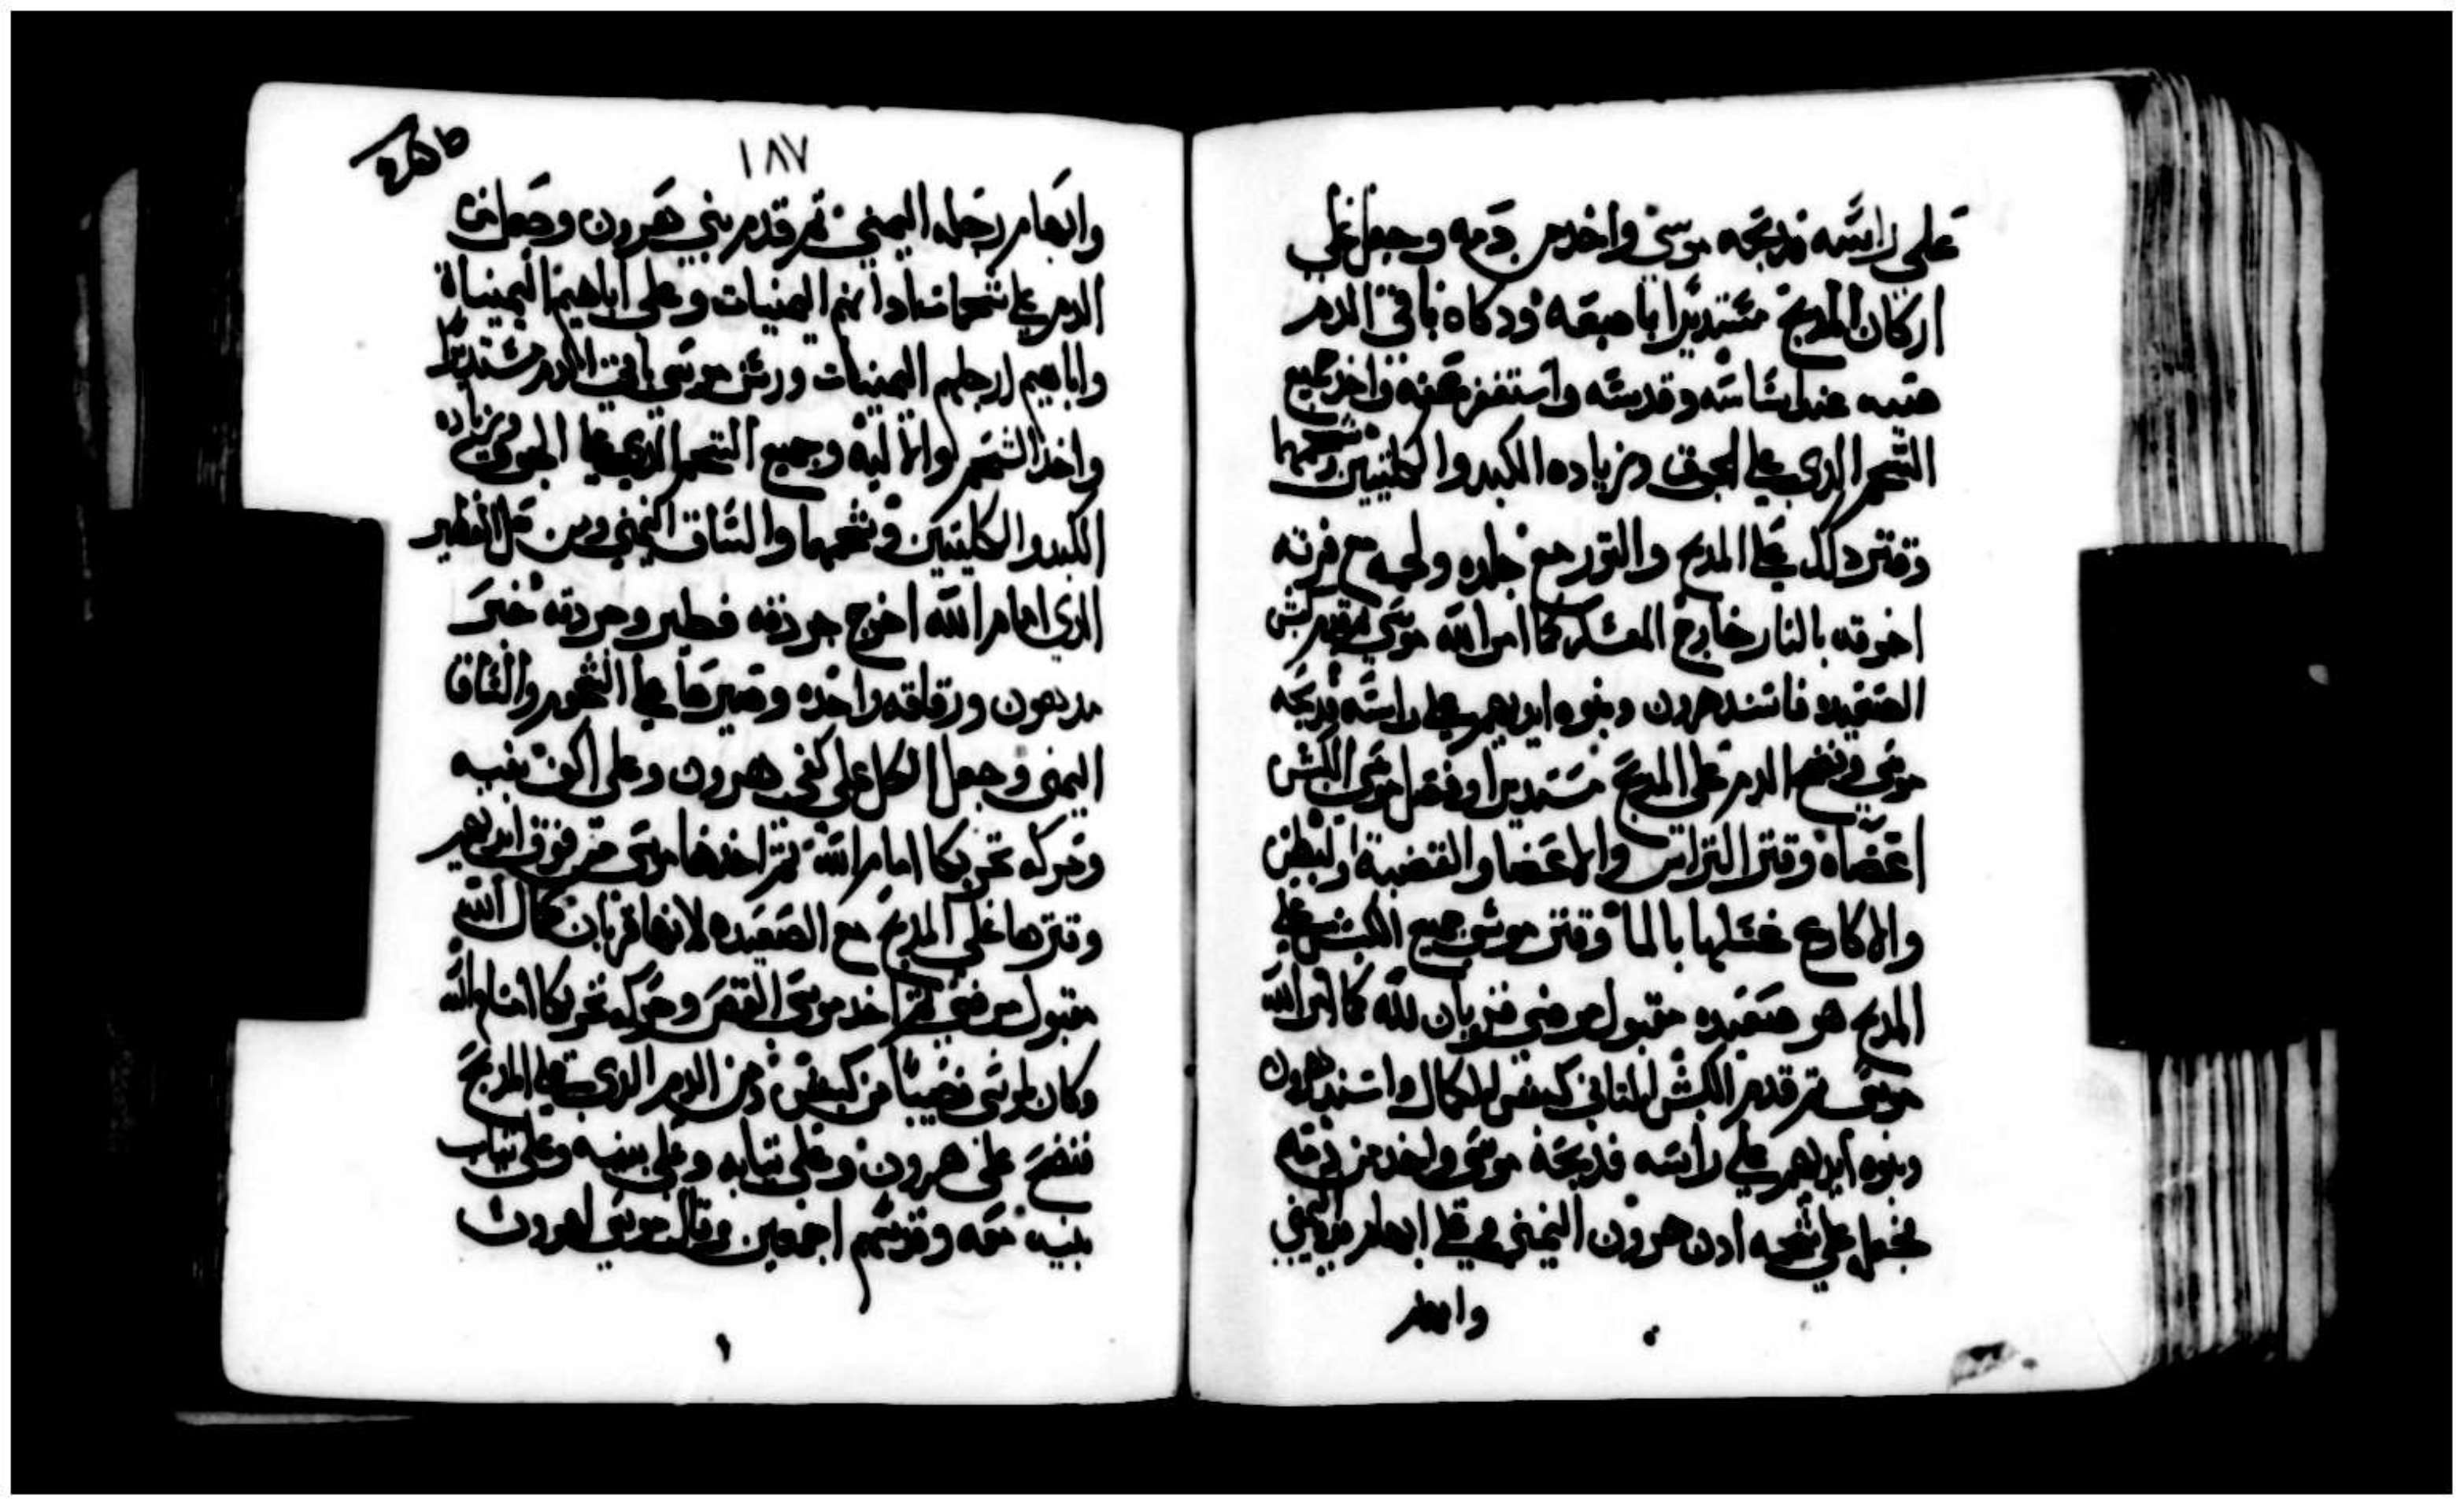 على راسه فدبحه موسى واخد من دمه وجعل على
اركان المدبح مستديرا باصبعه ودكاه باقي الدم
صبه عند اساسه وقدسه واستغفر عنه واخد جميع
الشحم الدي على الجوف وزياده الكبد والكليتين وشحمهما
وقتر دلك على المدبح والتور مع جلده ولحمه مع فرته
احرقه بالنار خارج المعسكر كما امر الله موسى وقدم كبش
الصعيده فاسند هرون وبنوه ايديهم على راسه فدبحه
موسى ونضح الدم على المدبح مستديرا وفصل موسى الكبش
اعضاه وقتر الراس والاعضا والقصبة والبطن
والاكارع غسلها بالما وقتر موسى جميع الكبش على
المدبح هو صعيده مقبول مرضي قربان لله كما امر الله
موسى تم قدم الكبش التاني كبش الكمال واسند هرون
وبنوه ايديهم على راسه فدبحه موسى واخد من دمه
فجعل على شحمه ادن هرون اليمنى وعلى ابهام يده اليمنى
وابهام
طاهره
١٨٧
وابهام رجله اليمنى تم قدم بني هرون وجعل من
الدم على شحمات ادانهم اليمنيات وعلى اباهيم اليمنياة
واباهيم ارجلهم اليمنيات ورش موسى باقي الدم مستديرا
واخد الشحم والاليه وجميع الشحم الدي على الجوف وزياده
الكبد والكليتين وشحمهما والساق اليمنى ومن سل الفطير
الدي امام الله اخرج جردقه فطير وجردقه خبز
مدهون ورقاقه واحده وصيرها على الشحوم والساق
اليمنى وجعل الكل على كفي هرون وعلى اكف بنيه
وحركه تحريكا امام الله تم اخدها موسى من فوق ايديهم
وقترها على المدبح مع الصعيده لانها قربان كمال لله
مقبول مرضي تم اخد موسى القص وحركه تحريكا امام الله
وكان لموسى نصيبا من كبش ومن الدم الدي على المدبح
فنضح على هرون وعلى تيابه وعلى بنيه وعلى تياب
بنيه معه وقدسهم اجمعين وقال موسى لهرون